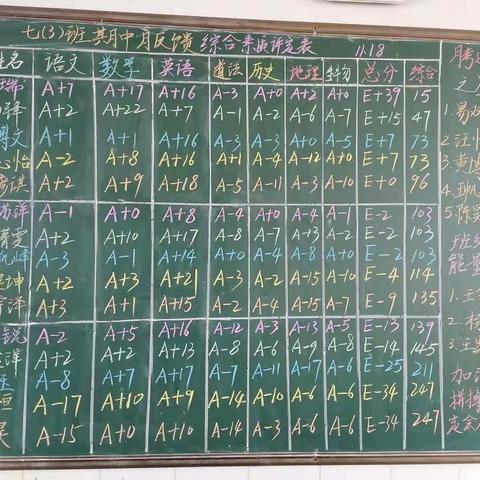 七(3)班期中月反馈综合素质评定表 11.18
姓名 语文 数学 英语 道法 历史 地理 生物 总分 综合
A+7 A+17 A+16 A-3 A+0 A+2 A+0 E+39 15
A+2 A+22 A+7 A-1 A-2 A-6 A-7 E+15 47
博文 A+1 A+1 A-3 A-3 A+0 A+5 E+7 73
心怡 A-2 A+8 A+16 A+1 A-4 A-12 A+0 E+7 73
琪 A+2 A+9 A+18 A-5 A-11 A-3 A-10 E+0 96
洋 A-1 A+0 A+8 A-4 A+0 A-4 A-1 E-2 103
雯 A+2 A+10 A+17 A-8 A-7 A-13 A-2 E-2 103
峰 A-3 A-1 A+14 A+0 A-4 A-8 A+0 E-2 103
坤 A+2 A+3 A+21 A-3 A-2 A-15 A-10 E-4 114
泽 A+3 A+1 A+15 A-2 A-4 A-6 A-7 E-9 135
锐 A-2 A+5 A+16 A-12 A-3 A-13 A-5 E-13 139
洋 A+2 A+2 A+13 A-8 A-6 A-9 A-8 E-14 145
A-8 A+7 A+17 A-7 A-11 A-17 A-6 E-25 211
恒 A-17 A+10 A+9 A-14 A-10 A-6 A-6 E-34 247
昊 A-15 A+0 A+10 A-14 A-3 A-6 A-6 E-34 247
1.易
2.汪
3.黄博
4.
5.陈
班级
能量
1.王
2.杨
3.王
加油
拼搏
定会